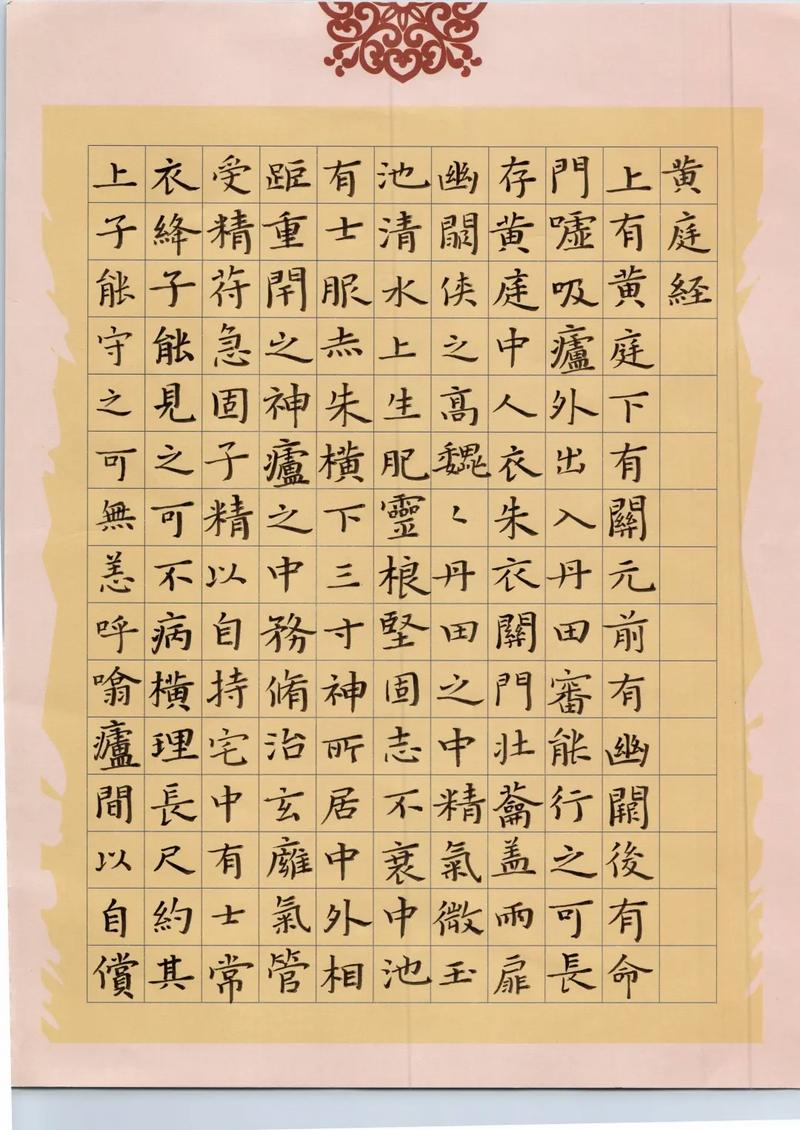 黄庭経
上有黄庭下有關元前有幽闕後有命
門噓吸廬外出入丹田審能行之可長
存黄庭中人衣朱衣關門壮蘥盖兩扉
幽闕侠之高魏〻丹田之中精氣微玉
池清水上生肥靈根堅固志不衰中池
有士服赤朱横下三寸神所居中外相
距重閇之神廬之中務脩治玄廱氣管
受精苻急固子精以自持宅中有士常
衣絳子能見之可不病横理長尺約其
上子能守之可無恙呼噏廬間以自償